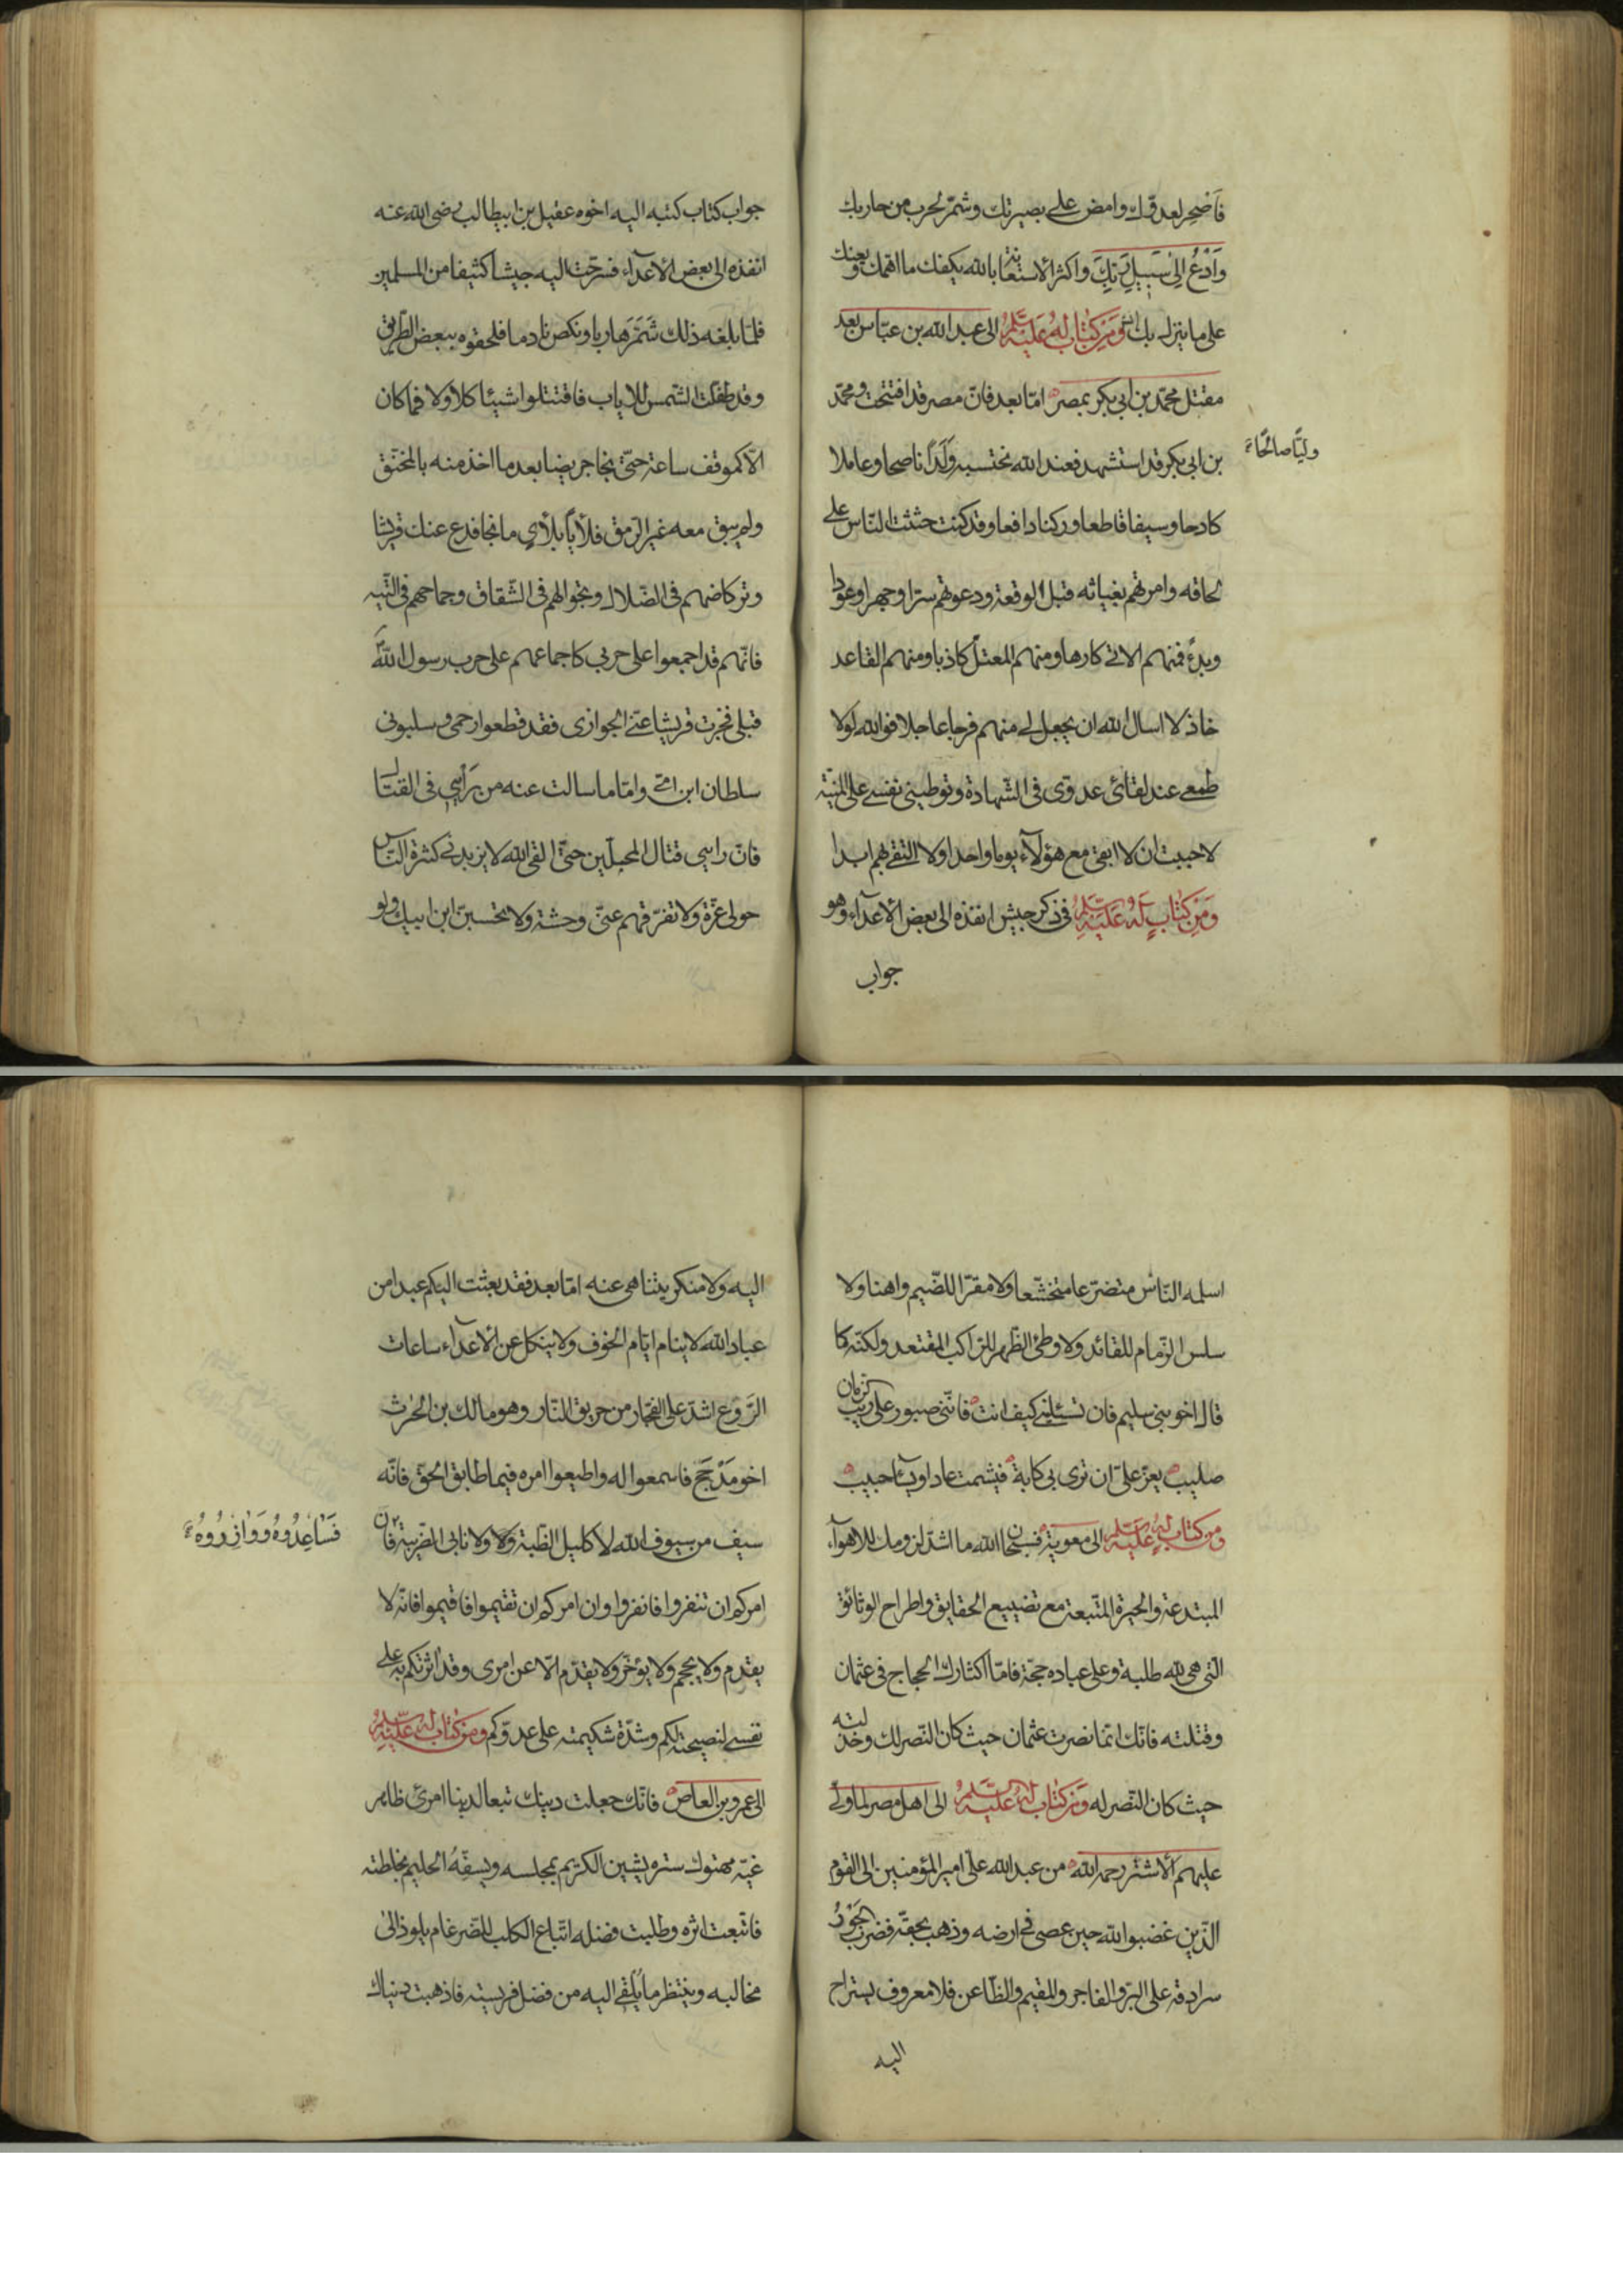 فاصحر لعدوّك وامض على بصيرتك وشمّر لحرب من حاربك
وَاُدْعُ اِلىٰ سَبيلِ رَبِّكَ واكثر الاستعانة بالله يكفك ما اهمّك ويعنك
على ما ينزل بك ومن كتاب له عليه السلم الى عبد الله بن عبّاس بعد
مقتل محمّد بن ابي بكر بمصر امّا بعد فانّ مصر قد افتتحت ومحمّد
بن ابى بكر قد استشهد فعند الله نحتسبه وَلَداً ناصحا وعاملا
وليّا صالحًا
كادحا وسيفا قاطعا وركنا دافعا وقد كنت حثثت النّاس على
لحاقه وامرتهم بغياثه قبل الوقعة ودعوتهم سرّا وجهرا وعودا
وبدءً فمنهم الاتى كارها ومنهم المعتلّ كاذبا ومنهم القاعد
خاذلا اسال الله ان يجعل لى منهم فرجا عاجلا فوالله لولا
طمعى عند لقائى عدوّى فى الشّهادة وتوطينى نفسى على المنيّة
لاحببت ان لا ابقى مع هؤلآء يوما واحدا ولا التقى بهم ابدا
ومن كتاب له عليه السلم فى ذكر جيش انفذه الى بعض الاعدآء وهو
جواب
جواب كتاب كتبه اليه اخوه عقيل بن ابيطالب رضى الله عنه
انفذه الى بعض الاعدآء فسرّحت اليه جيشا كثيفا من المسلمين
فلمّا بلغه ذلك شَمَّرَ هاربا ونكص نادما فلحقوه ببعض الطّريق
وقد طفّلت الشّمس للاياب فاقتتلوا شيئا كلا ولا فما كان
الّا كموقف ساعة حتّى نجا جريضا بعد ما اخذ منه بالمخنّق
ولم يبق معه غير الرّمق فلأياً بلأيٍ ما نجا فدع عنك قريشا
وتركاضهم فى الضّلال وتجوالهم فى الشّقاق وجماحهم فى التّيه
فانّهم قد اجمعوا على حربى كاجماعهم على حرب رسول الله
قبلى فجزت قريشا عنّى الجوازى فقد قطعوا رحمى وسلبونى
سلطان ابن امّى وامّا ما سالت عنه من رَأيى فى القتال
فانّ رايى قتال المحلّين حتّى القى الله لا يزيدنى كثرة النّاس
حولى عزّة ولا تفرّقهم عنّى وحشة ولا تحسبنّ ابن ابيك ولو
اسلمه النّاس متضرّعا متخشّعا ولا مقرّا للضّيم واهنا ولا
سلس الزّمام للقائد ولا وطئ الظّهر للرّاكب المقتعد ولكنّه كما
قال اخو بنى سليم فان تسئلينى كيف انت فانّنى صبور على ريب الزمان
صليب يعزّ علىّ ان ترى بى كابة فيشمت عاد او يسآء حبيب
ومن كتاب له عليه السلم الى معوية فسبحان الله ما اشدّ لزومك للاهوآء
المبتدعة والحيرة المتّبعة مع تضييع الحقايق واطراح الوثائق
الّتى هى لله طلبة وعلى عباده حجّة فامّا اكثارك الحجاج فى عثمان
وقتلته فانّك انّما نصرت عثمان حيث كان النّصر لك وخذلته
حيث كان النّصر له ومن كتاب له عليه السلم الى اهل مصر لمّا ولّى
عليهم الاشتر رحمه الله من عبد الله علىّ امير المؤمنين الى القوم
الّذين غضبوا لله حين عصى فى ارضه وذهب بحقّه فضرب الجَوْرُ
سرادقه على البرّ والفاجر والمقيم والظّاعن فلا معروف يستراح
اليه
اليه ولا منكر يتناهى عنه امّا بعد فقد بعثت اليكم عبدا من
عباد الله لا ينام ايّام الخوف ولا ينكل عن الاعدآء ساعات
الرَّوْع اشدّ على الفجّار من حريق النّار وهو مالك بن الحٰرث
اخو مَذْحِجٍ فاسمعوا له واطيعوا امره فيما طابق الحقّ فانّه
سيف من سيوف الله لا كليل الظّبة ولا نابى الضّريبة فان
فَسٰاعِدُوهُ وَوٰازِرُوهُ
امركم ان تنفروا فانفروا وان امركم ان تقيموا فاقيموا فانّه لا
يقدم ولا يحجم ولا يؤخّر ولا يقدّم الّا عن امرى وقد اثرتكم به على
نفسى لنصيحته لكم وشدّة شكيمته على عدوّكم ومن كتاب له عليه السلم
الى عمرو بن العاص فانّك جعلت دينك تبعا لدنيا امرئ ظاهر
غيّه مهتوك ستره يشين الكريم بمجلسه ويسفّه الحليم بخلطته
فاتّبعت اثره وطلبت فضله اتّباع الكلب للضّرغام يلوذ الى
مخالبه وينتظر ما يُلقى اليه من فضل فريسته فاذهبت دنياك